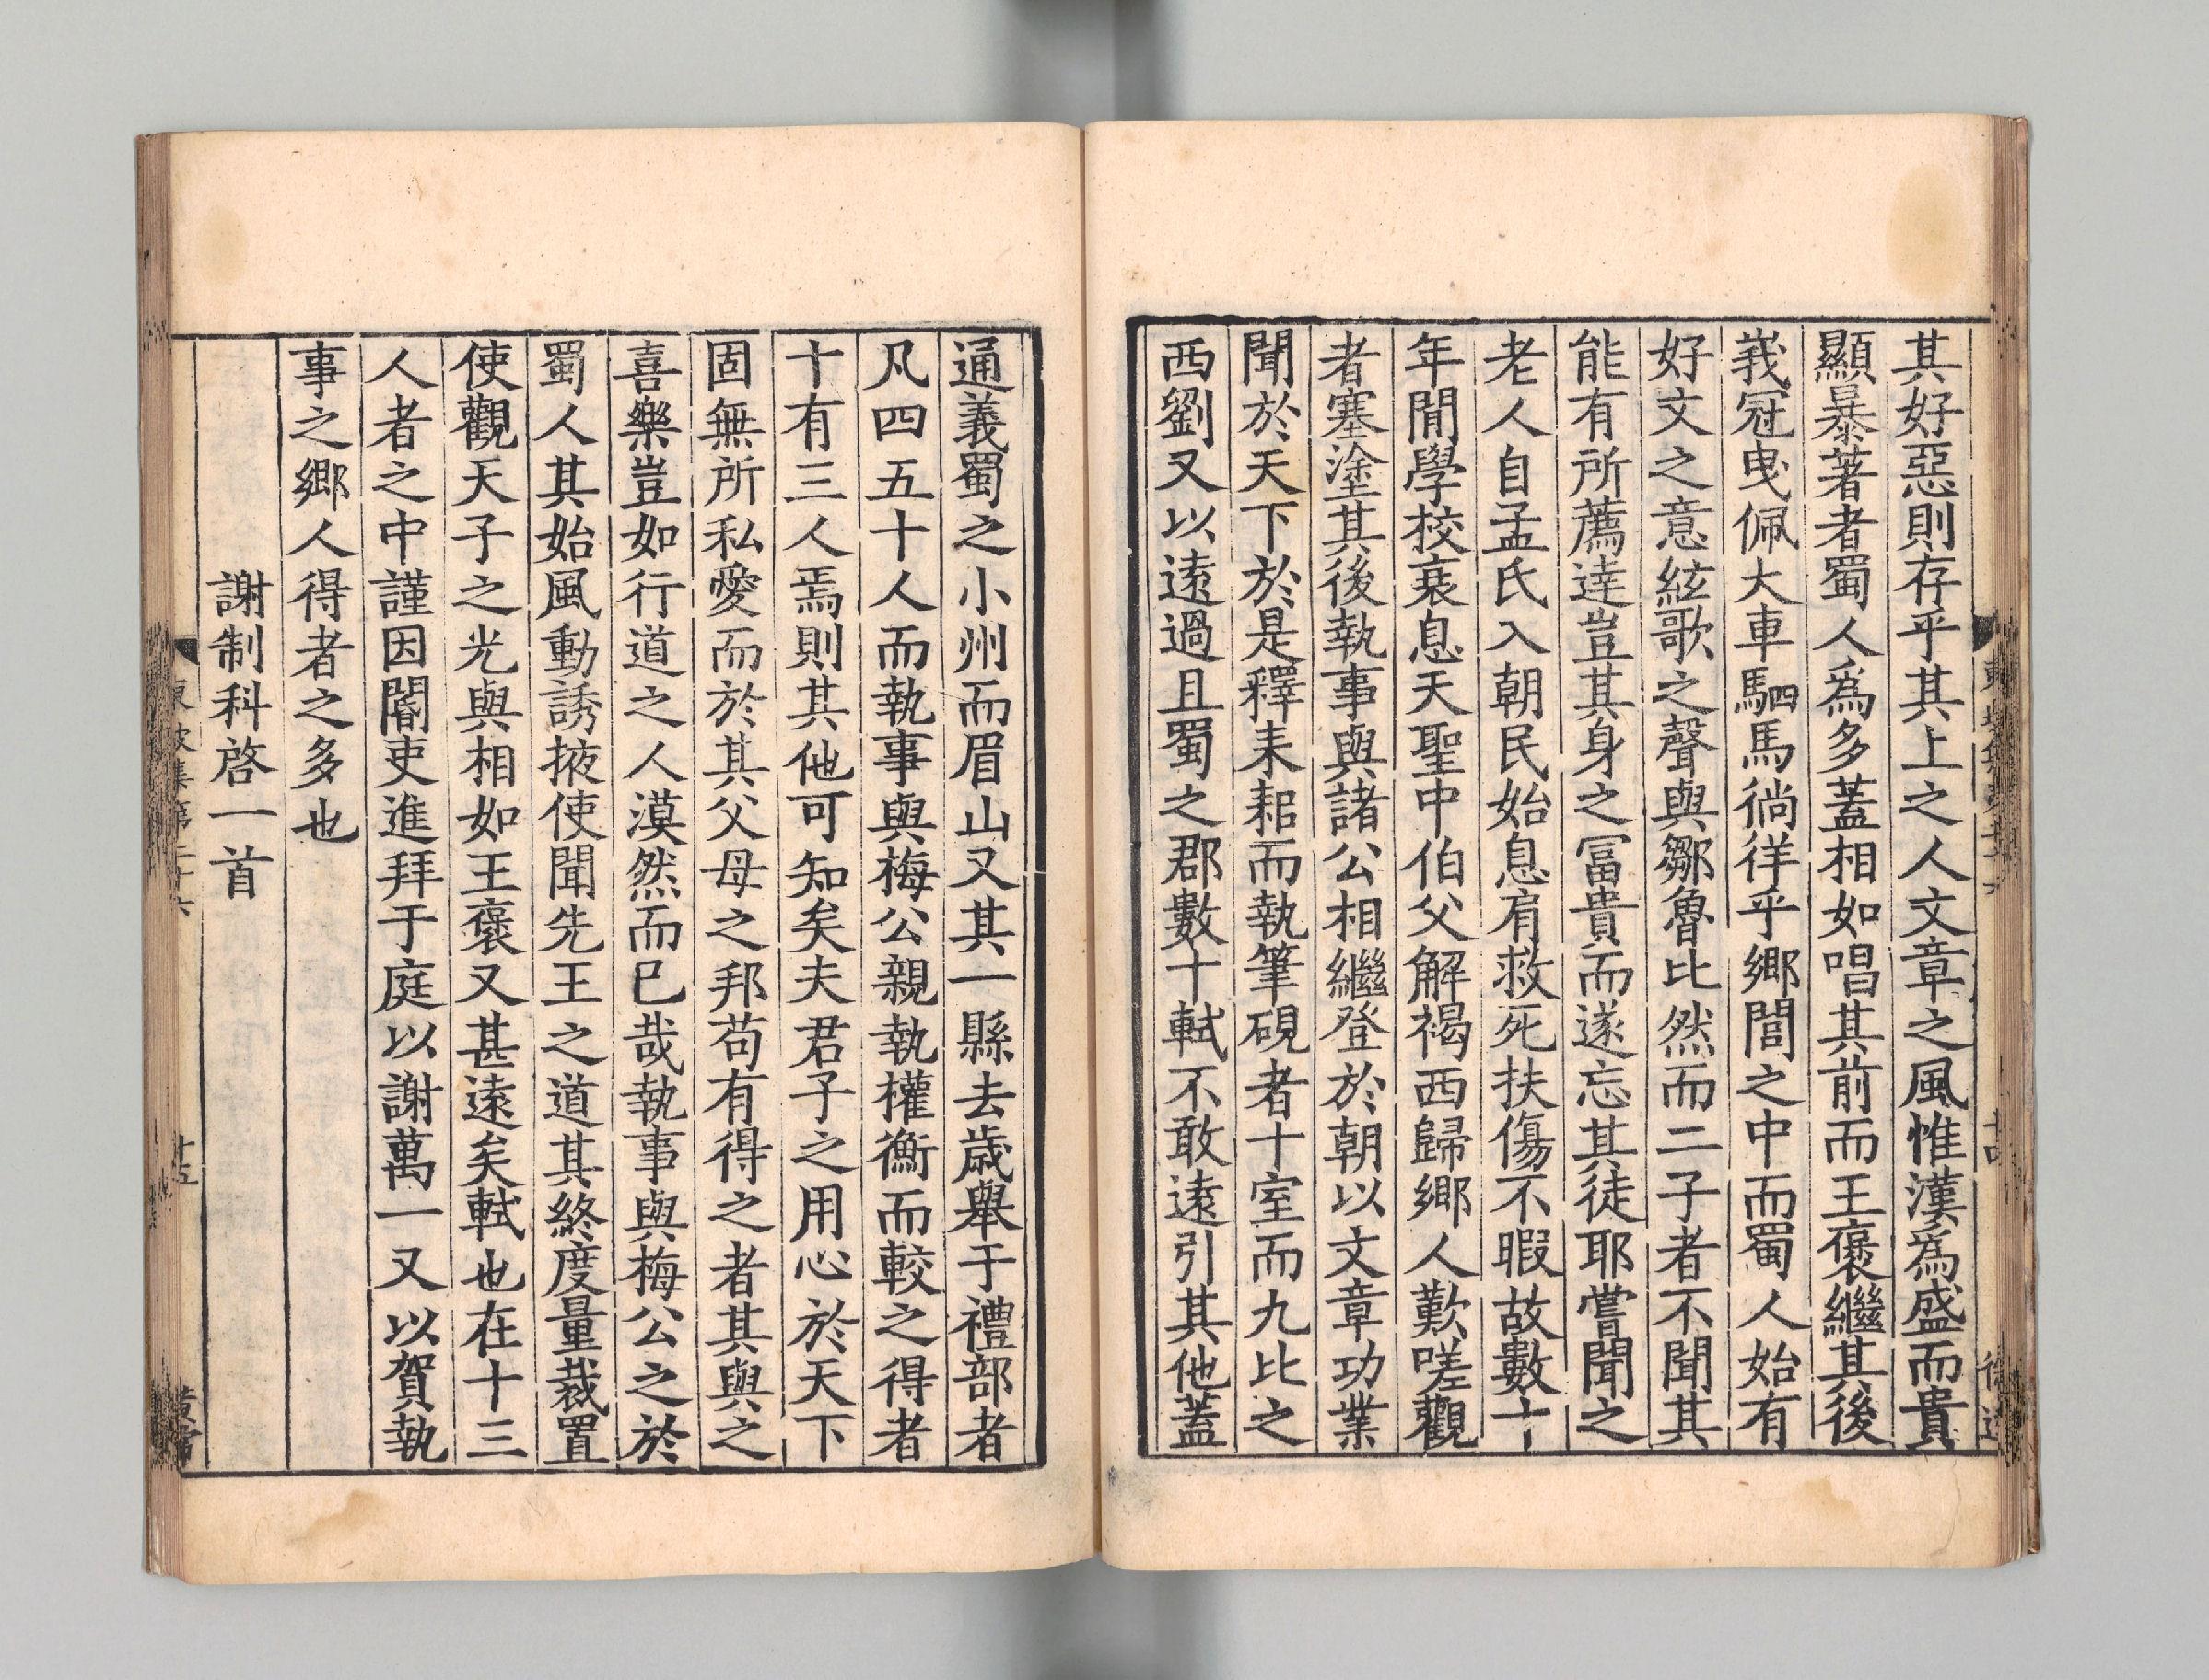 其好惡則存乎其上之人文章之風惟漢爲盛而貴
顯暴著者蜀人爲多蓋相如唱其前而王褒繼其後
峩冠曳佩大車駟馬徜徉乎鄉閭之中而蜀人始有
好文之意絃歌之聲與鄒魯比然而二子者不聞其
能有所薦達豈其身之冨貴而遂忘其徒耶嘗聞之
老人自孟氏入朝民始息肩救死扶傷不暇故數十
年閒學校衰息天聖中伯父解褐西歸鄉人歎嗟觀
者塞塗其後執事與諸公相繼登於朝以文章功業
聞於天下於是釋耒耜而執筆硯者十室而九比之
西劉又以遠過且蜀之郡數十軾不敢遠引其他蓋
通義蜀之小州而眉山又其一縣去歲舉于禮部者
凡四五十人而執事與梅公親執權衡而較之得者
十有三人焉則其他可知矣夫君子之用心於天下
固無所私愛而於其父母之邦苟有得之者其與之
喜樂豈如行道之人漠然而已哉執事與梅公之於
蜀人其始風動誘掖使聞先王之道其終度量裁置
使觀天子之光與相如王褒又甚遠矣軾也在十三
人者之中謹因閽吏進拜于庭以謝萬一又以賀執
事之鄉人得者之多也
謝制科啓一首
東坡集第二十六
十五